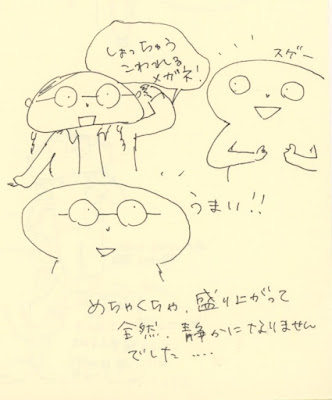 しょっちゅう
こわれる
メガネ!
スゲー
うまい!!
めちゃくちゃ、盛り上がって
全然、静かになりません
でした....